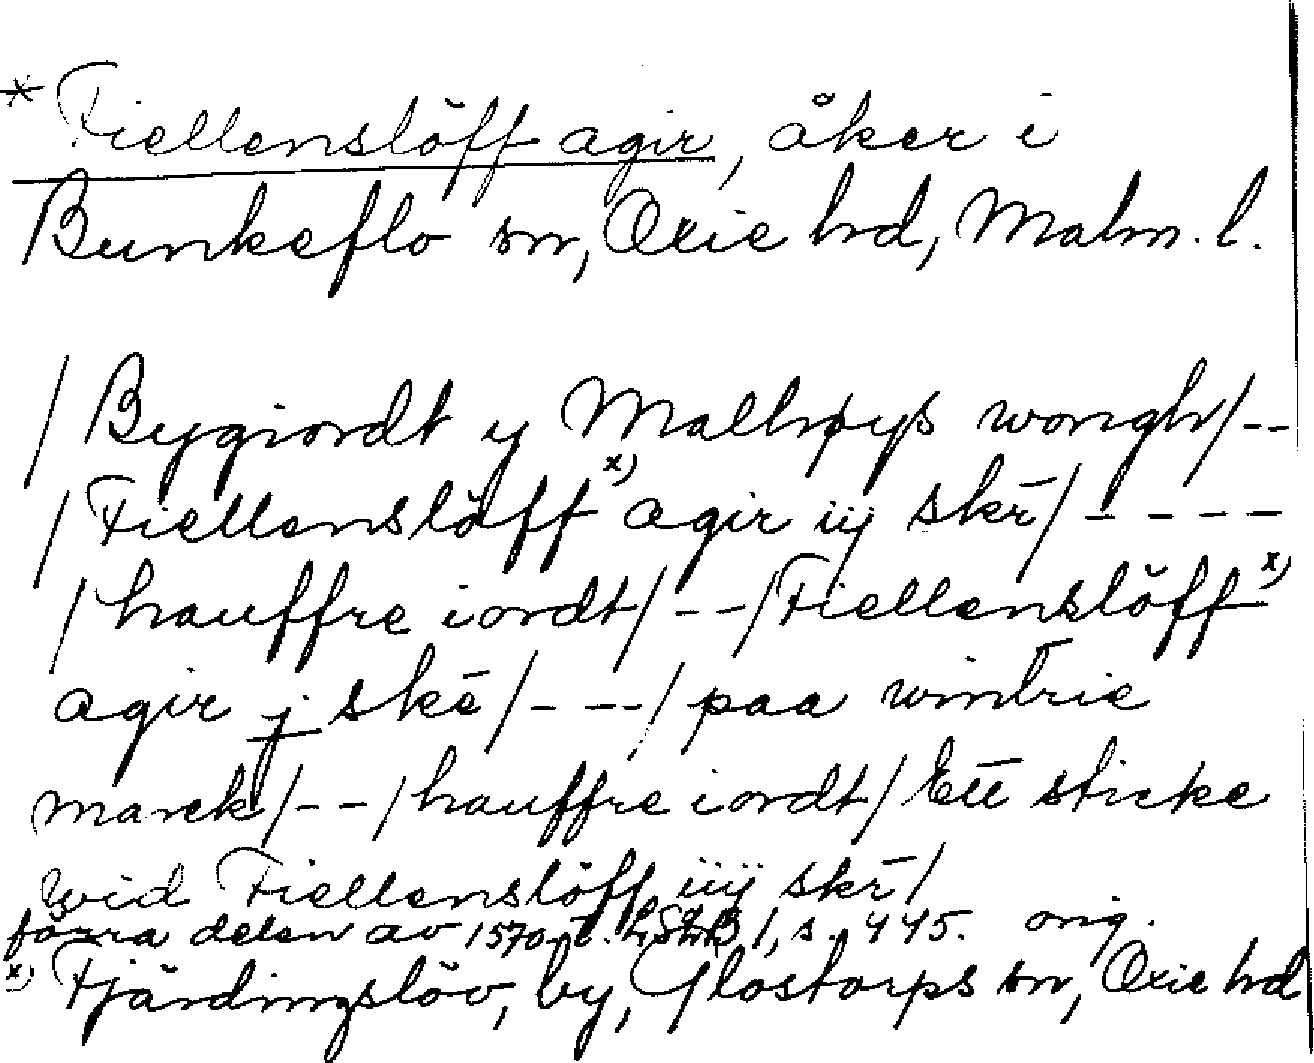 * Fiellenslöff agir, åker i
Bunkeflo sn, Oxie hd, Malm. l.
/ Bygiordt y Malhøys wongh/--
/ Fiellenslöff x) agir iij skr̄/ - - - -
/ hauffre iordt/ - - / Fiellenslöff x)
agir j skē / - -- / paa wintrie
marck/ - - / hauffre iordt/ Ett sticke
wid Fiellenslöff iiij skr̄ /
förra delen av 1570-t. LSkB 1, s. 445. orig.
x) Fjärdingslöv, by, Glostorps sn, Oxie hd